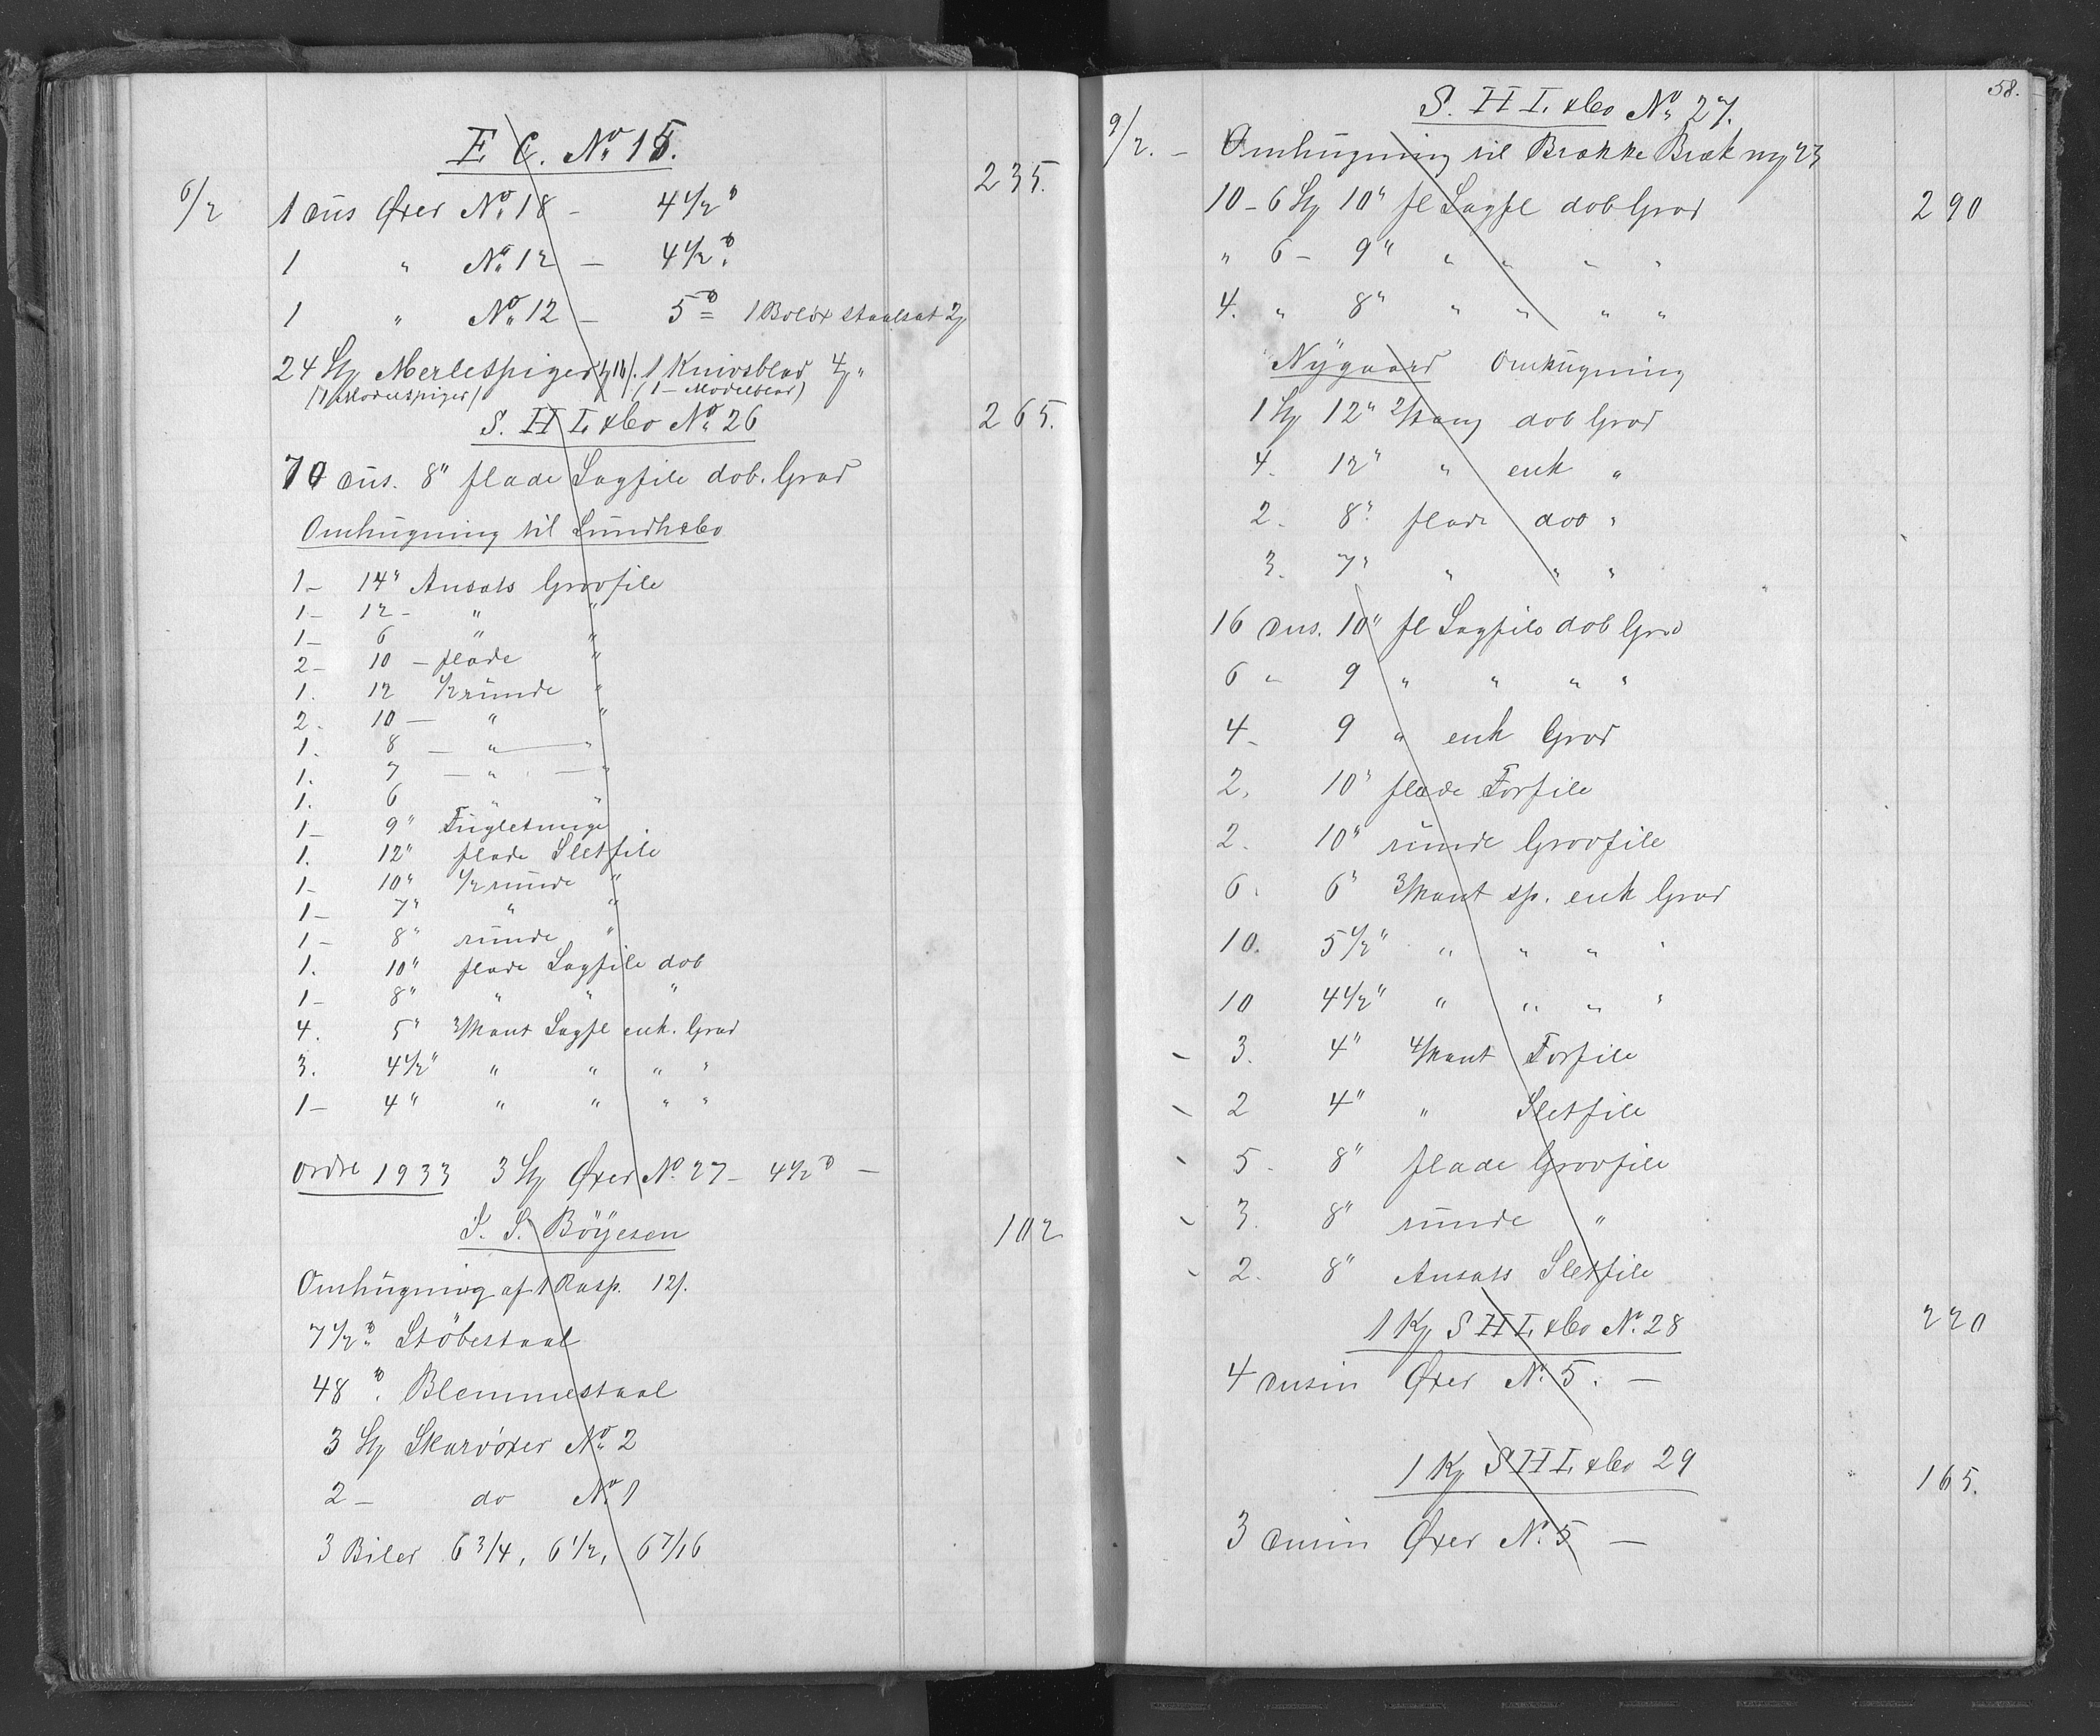 E C. No 15.
235.
6/2 1 dus Øxer No 18 - 4 1/2 ℔
1 " No 12 - 4 1/2 ℔
1 " No 12 - 5 ℔ = 1 Bolöx staalsat 2/
24 St Merlespiger 1 Knivsblad 4/"
(1 Modelspiger) (1 - Modelblad)
S. H L. & Co No 26 265.
70 dus. 8" flade Sagfile dob. Grad
Omhugning til Lundh & Co
1- 14" Ansats Grovfile
1- 12- " "
1- 6 " "
2- 10 - flade "
1. 12 1/2 runde "
2- 10 - " "
1. 8 - " - "
1. 7 - " - "
1. 6 " "
1- 9" Fugletunge
1. 12" flade Sletfile
1- 10" 1/2 runde "
1- 7" " "
1- 8" runde "
1. 10" flade Sagfile dob
1- 8" " " "
4. 5" 3/kant Sagfl enk. Grad
3. 4 1/2" " " " "
1- 4" " " " "
Ordre 1933 3 St Øxer No 27- 4 1/2 ℔ -
S. Böÿesen 102
Omhugning af 1 Rasp. 12/.
7 1/2 ℔ Stöbestaal
48 ℔. Blemmestaal
3 St Skarvöxer No 2
2 - do No 1
3 Biler 6 3/4, 6 1/2, 6 7/16
58.
S. H L. & Co No 27.
9/2. - Omhugning til Brække Bræk ny 23
10 - 6 St 10" fl Sagfl dob Grad 290
" 6 - 9" " " " "
4. " 8" " " " "
Nÿgaard Omhugning
1 St 12" dob Grad
4. 12" " enk "
2. 8" flade dob "
3. 7" " " "
16 dus. 10" fl Sagfile dob Grad
6 " 9 " " " "
4- 9 " enk Grad
2. 10" flade Forfile
2. 10" runde Grovfile
6. 6" 3/kant sp. enk Grad
10. 5 1/2" " " " "
10 4 1/2" " " " "
- 3. 4" 4/kant Forfile
- 2 4" " Sletfile
- 5- 8" flade Grovfile
- 3. 8" runde "
- 2. 8" Ansats Sletfile
1 Kj S H L. & Co No. 28 220
4 dusin Øxer No. 5. -
1 Kj S H L. & Co 29
165.
3 dusin Øxer No. 5 -